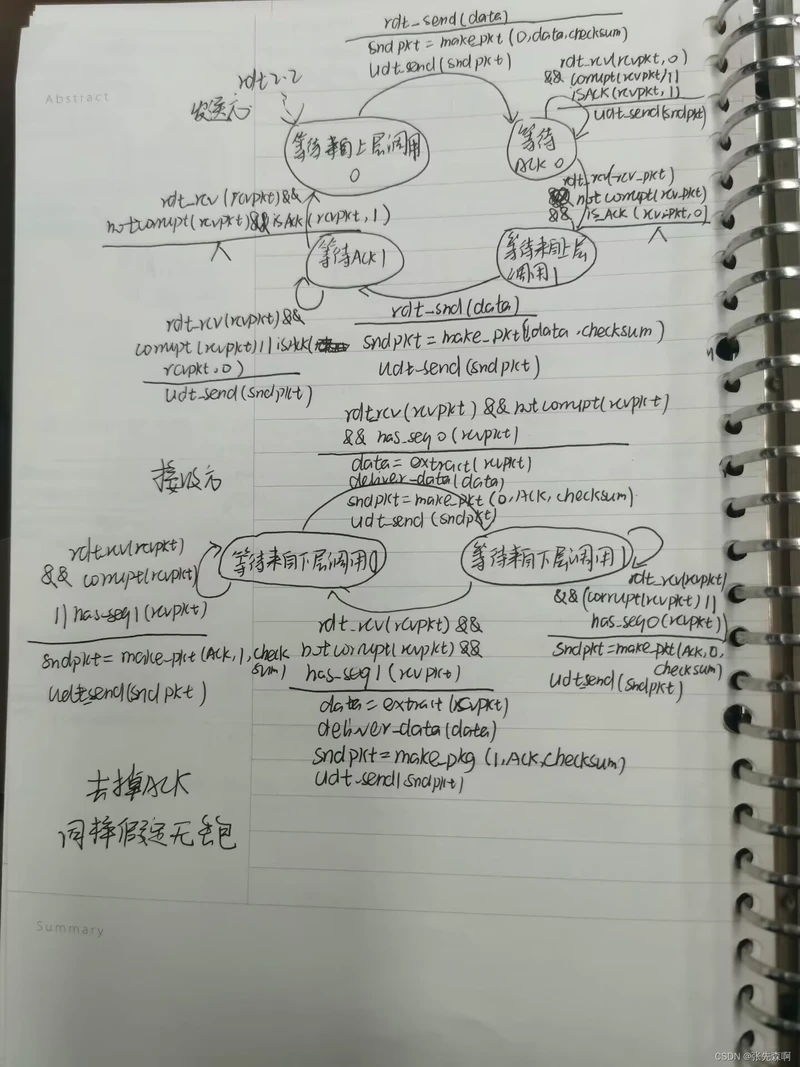 Abstract
rdt2.2
发送方
rdt_send(data)
sndpkt = make_pkt (0,data,checksum)
udt_send(sndpkt)
rdt_rcv(rcvpkt,0)
&& corrupt(rcvpkt)||
isACK(rcvpkt,1)
udt_send(sndpkt)
等待来自上层调用
0
等待
ACK 0
rdt_rcv(rcv_pkt)
&& not corrupt(rcv_pkt)
&& is_ACK(rcv_pkt,0)
rdt_rcv(rcvpkt)&&
notcorrupt(rcvpkt)&&isAck(rcvpkt,1)
等待ACK1
等待来自上层
调用1
rdt_rcv(rcvpkt)&&
corrupt(rcvpkt)||isAck(
rcvpkt,0)
udt_send(sndpkt)
rdt_snd(data)
sndpkt = make_pkt(1data,checksum)
udt_send(sndpkt)
接收方
rdtrcv(rcvpkt) && notcorrupt(rcvpkt)
&& has_seq0(rcvpkt)
data = extract(rcvpkt)
deliver-data(data)
sndpkt=make_pkt(0,ACK,checksum)
udt_send(sndpkt)
等待来自下层调用0
等待来自下层调用1
rdt_rcv(rcvpkt)
&& corrupt(rcvpkt)
|| has_seq1(rcvpkt)
sndpkt=make_pkt(Ack,1,check
sum)
udt_send(sndpkt)
rdt_rcv(rcvpkt) &&
notcorrupt(rcvpkt)&&
has_seq1(rcvpkt)
data=extract(rcvpkt)
deliver-data(data)
sndpkt=make_pkg(1,Ack,checksum)
udt_send(sndpkt)
rdt_rcv(rcvpkt)
&&(corrupt(rcvpkt)||
has_seq0(rcvpkt))
sndpkt=make_pkt(Ack,0,
checksum)
udt_send(sndpkt)
去掉ACK
同样假定无丢包
Summary
CSDN @张先森啊